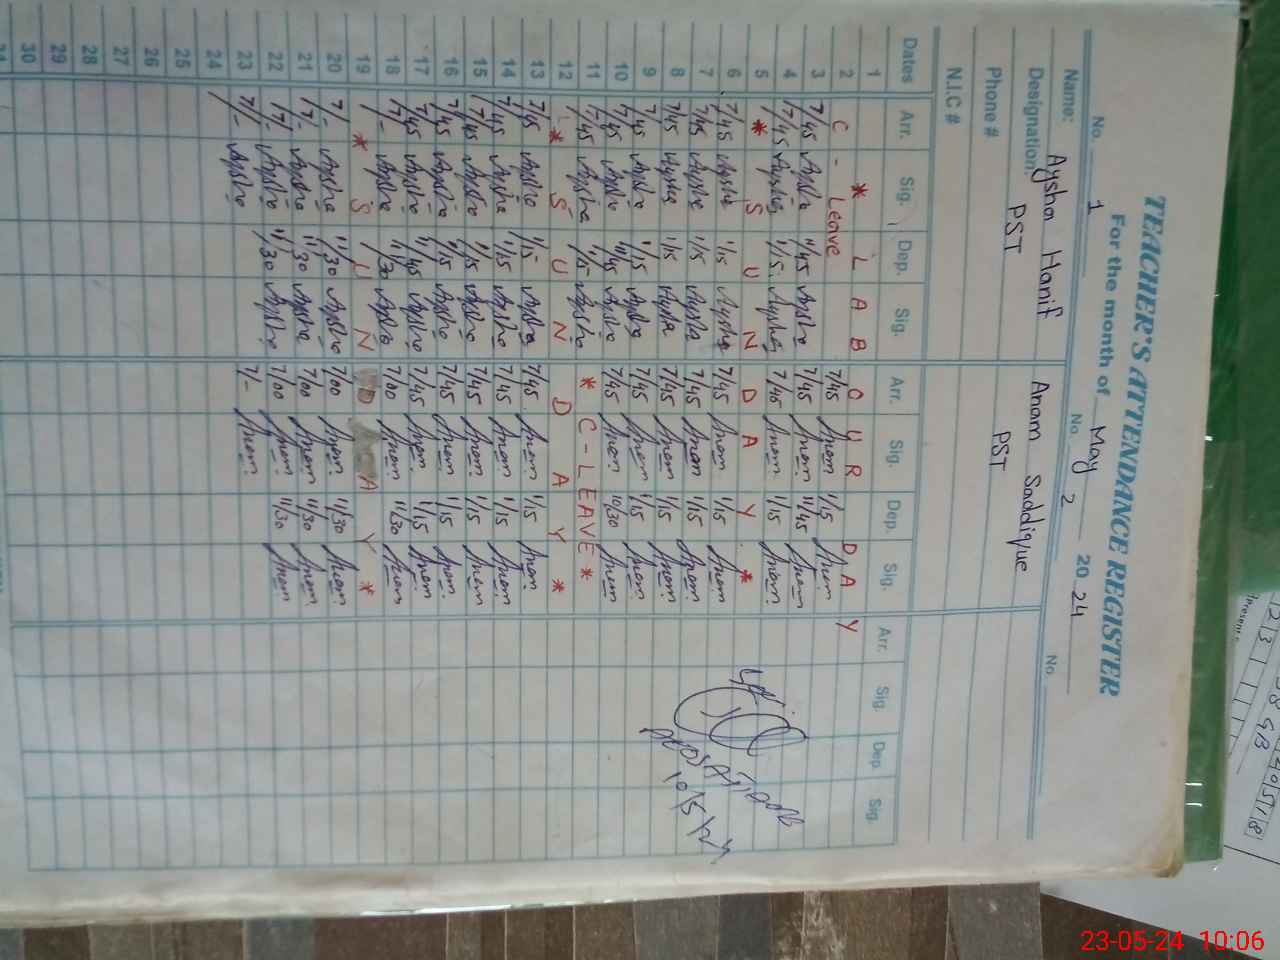 TEACHER'S ATTENDANCE REGISTER
For the month of May 2024
No. 1 No. 2 No.
Name: Aysha Hanif Anam Saddique
Designation: PST PST
Phone #
N.I.C #
Dates Arr. Sig. Dep. Sig. Arr. Sig. Dep. Sig. Arr. Sig. Dep. Sig.
1 * L A B O U R D A Y
2 C - Leave 7/45 Anam 1/15 Anam
3 7/45 Aysha 11/45 Aysha 7/45 Anam 11/45 Anam
4 7/45 Aysha 1/15 Aysha 7/45 Anam 1/15 Anam
5 * S U N D A Y *
6 7/45 Aysha 1/15 Aysha 7/45 Anam 1/15 Anam
7 7/45 Aysha 1/15 Aysha 7/45 Anam 1/15 Anam
8 7/45 Aysha 1/15 Aysha 7/45 Anam 1/15 Anam
9 7/45 Aysha 1/15 Aysha 7/45 Anam 1/15 Anam
10 7/45 Aysha 11/45 Aysha 7/45 Anam 10/30 Anam
11 7/45 Aysha 1/15 Aysha * C - LEAVE *
12 * S U N D A Y *
13 7/45 Aysha 1/15 Aysha 7/45 Anam 1/15 Anam
14 7/45 Aysha 1/15 Aysha 7/45 Anam 1/15 Anam
15 7/45 Aysha 1/15 Aysha 7/45 Anam 1/15 Anam
16 7/45 Aysha 1/15 Aysha 7/45 Anam 1/15 Anam
17 7/45 Aysha 11/45 Aysha 7/45 Anam 1/15 Anam
18 7/- Aysha 11/30 Aysha 7/00 Anam 11/30 Anam
19 * S U N D A Y *
20 7/- Aysha 11/30 Aysha 7/00 Anam 11/30 Anam
21 7/- Aysha 11/30 Aysha 7/00 Anam 11/30 Anam
22 7/- Aysha 11/30 Aysha 7/00 Anam 11/30 Anam
23 7/- Aysha 7/- Anam
24
25
26
27
28
29
30
10/5/24
23-05-24 10:06